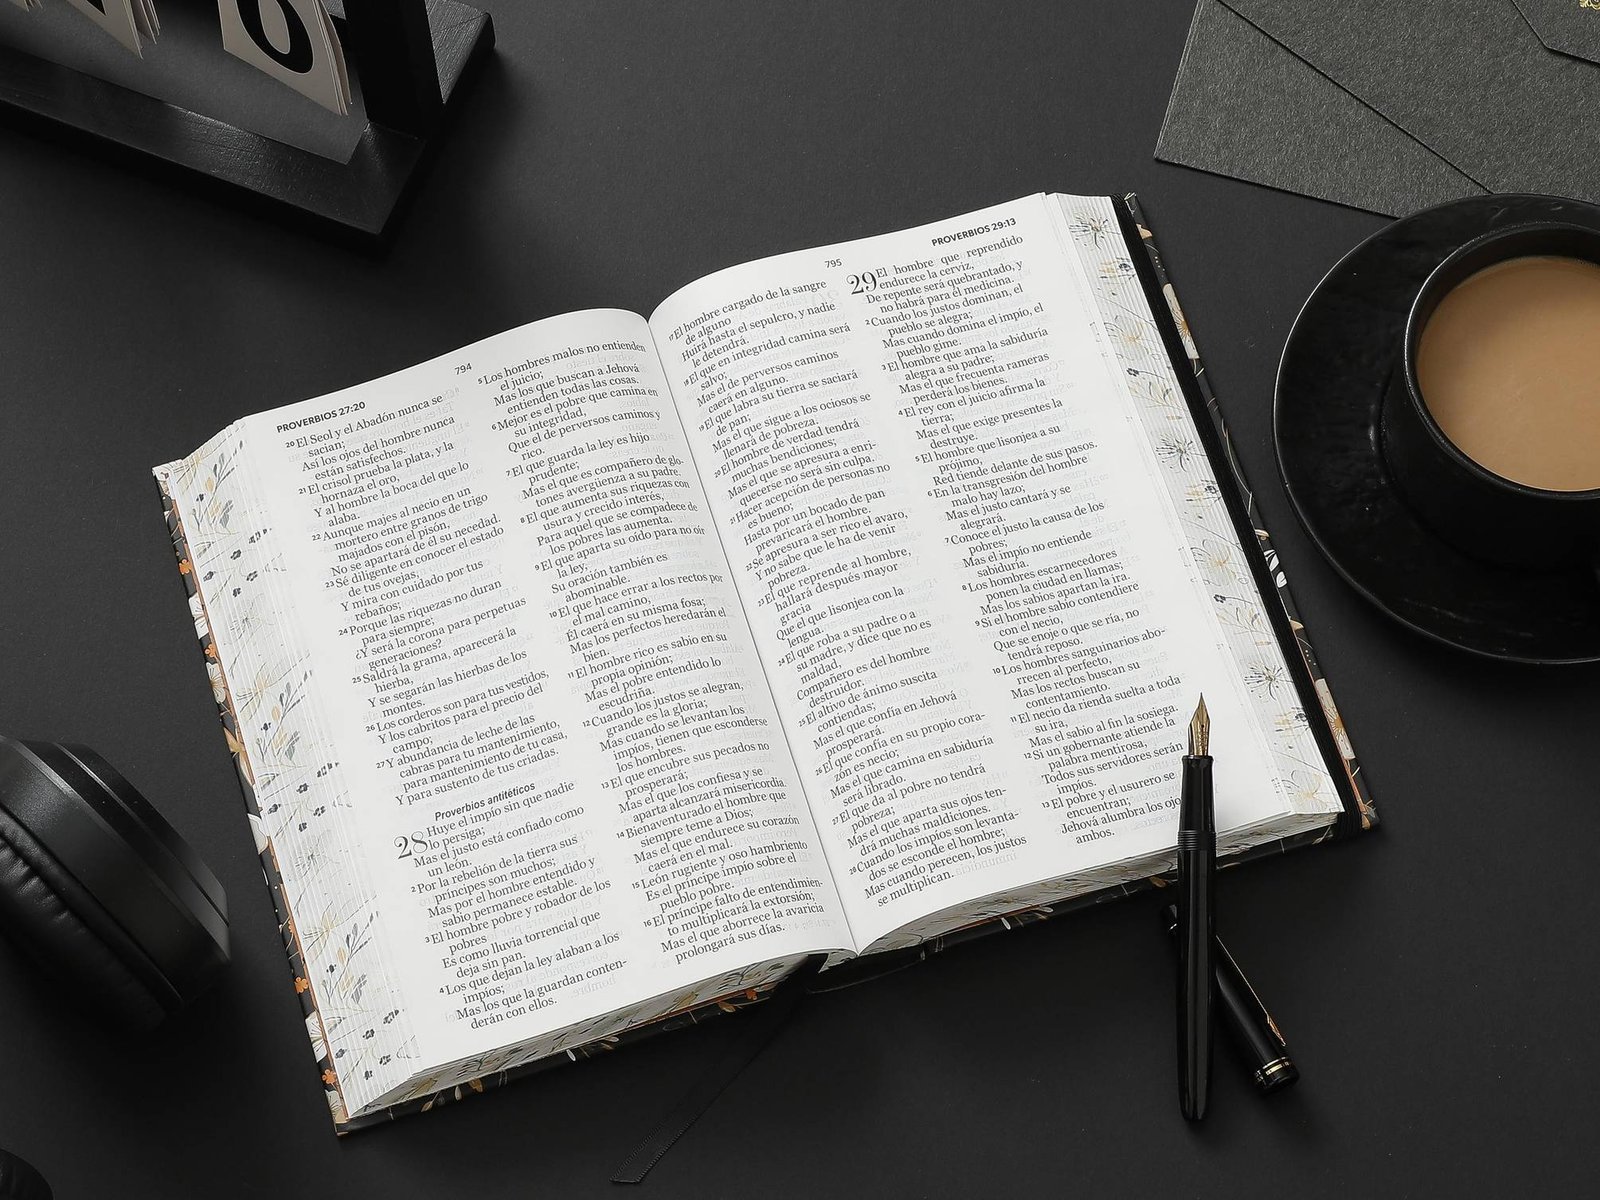 PROVERBIOS 27:20
794
20 El Seol y el Abadón nunca se
sacian;
Así los ojos del hombre nunca
están satisfechos.
21 El crisol prueba la plata, y la
hornaza el oro,
Y al hombre la boca del que lo
alaba.
22 Aunque majes al necio en un
mortero entre granos de trigo
majados con el pisón,
No se apartará de él su necedad.
23 Sé diligente en conocer el estado
de tus ovejas,
Y mira con cuidado por tus
rebaños;
24 Porque las riquezas no duran
para siempre;
¿Y será la corona para perpetuas
generaciones?
25 Saldrá la grama, aparecerá la
hierba,
Y se segarán las hierbas de los
montes.
26 Los corderos son para tus vestidos,
Y los cabritos para el precio del
campo;
27 Y abundancia de leche de las
cabras para tu mantenimiento,
para mantenimiento de tu casa,
Y para sustento de tus criadas.
Proverbios antitéticos
28 Huye el impío sin que nadie
lo persiga;
Mas el justo está confiado como
un león.
2 Por la rebelión de la tierra sus
príncipes son muchos;
Mas por el hombre entendido y
sabio permanece estable.
3 El hombre pobre y robador de los
pobres
Es como lluvia torrencial que
deja sin pan.
4 Los que dejan la ley alaban a los
impíos;
Mas los que la guardan conten-
derán con ellos.
5 Los hombres malos no entienden
el juicio;
Mas los que buscan a Jehová
entienden todas las cosas.
6 Mejor es el pobre que camina en
su integridad,
Que el de perversos caminos y
rico.
7 El que guarda la ley es hijo
prudente;
Mas el que es compañero de glo-
tones avergüenza a su padre.
8 El que aumenta sus riquezas con
usura y crecido interés,
Para aquel que se compadece de
los pobres las aumenta.
9 El que aparta su oído para no oír
la ley,
Su oración también es
abominable.
10 El que hace errar a los rectos por
el mal camino,
Él caerá en su misma fosa;
Mas los perfectos heredarán el
bien.
11 El hombre rico es sabio en su
propia opinión;
Mas el pobre entendido lo
escudriña.
12 Cuando los justos se alegran,
grande es la gloria;
Mas cuando se levantan los
impíos, tienen que esconderse
los hombres.
13 El que encubre sus pecados no
prosperará;
Mas el que los confiesa y se
aparta alcanzará misericordia.
14 Bienaventurado el hombre que
siempre teme a Dios;
Mas el que endurece su corazón
caerá en el mal.
15 León rugiente y oso hambriento
Es el príncipe impío sobre el
pueblo pobre.
16 El príncipe falto de entendimien-
to multiplicará la extorsión;
Mas el que aborrece la avaricia
prolongará sus días.
795
PROVERBIOS 29:13
17 El hombre cargado de la sangre
de alguno
Huirá hasta el sepulcro, y nadie
le detendrá.
18 El que en integridad camina será
salvo;
Mas el de perversos caminos
caerá en alguno.
19 El que labra su tierra se saciará
de pan;
Mas el que sigue a los ociosos se
llenará de pobreza.
20 El hombre de verdad tendrá
muchas bendiciones;
Mas el que se apresura a enri-
quecerse no será sin culpa.
21 Hacer acepción de personas no
es bueno;
Hasta por un bocado de pan
prevaricará el hombre.
22 Se apresura a ser rico el avaro,
Y no sabe que le ha de venir
pobreza.
23 El que reprende al hombre,
hallará después mayor
gracia
Que el que lisonjea con la
lengua.
24 El que roba a su padre o a
su madre, y dice que no es
maldad,
Compañero es del hombre
destruidor.
25 El altivo de ánimo suscita
contiendas;
Mas el que confía en Jehová
prosperará.
26 El que confía en su propio cora-
zón es necio;
Mas el que camina en sabiduría
será librado.
27 El que da al pobre no tendrá
pobreza;
Mas el que aparta sus ojos ten-
drá muchas maldiciones.
28 Cuando los impíos son levanta-
dos se esconde el hombre;
Mas cuando perecen, los justos
se multiplican.
29 El hombre que reprendido
endurece la cerviz,
De repente será quebrantado, y
no habrá para él medicina.
2 Cuando los justos dominan, el
pueblo se alegra;
Mas cuando domina el impío, el
pueblo gime.
3 El hombre que ama la sabiduría
alegra a su padre;
Mas el que frecuenta rameras
perderá los bienes.
4 El rey con el juicio afirma la
tierra;
Mas el que exige presentes la
destruye.
5 El hombre que lisonjea a su
prójimo,
Red tiende delante de sus pasos.
6 En la transgresión del hombre
malo hay lazo;
Mas el justo cantará y se
alegrará.
7 Conoce el justo la causa de los
pobres;
Mas el impío no entiende
sabiduría.
8 Los hombres escarnecedores
ponen la ciudad en llamas;
Mas los sabios apartan la ira.
9 Si el hombre sabio contendiere
con el necio,
Que se enoje o que se ría, no
tendrá reposo.
10 Los hombres sanguinarios abo-
rrecen al perfecto,
Mas los rectos buscan su
contentamiento.
11 El necio da rienda suelta a toda
su ira,
Mas el sabio al fin la sosiega.
12 Si un gobernante atiende la
palabra mentirosa,
Todos sus servidores serán
impíos.
13 El pobre y el usurero se
encuentran;
Jehová alumbra los ojos
ambos.